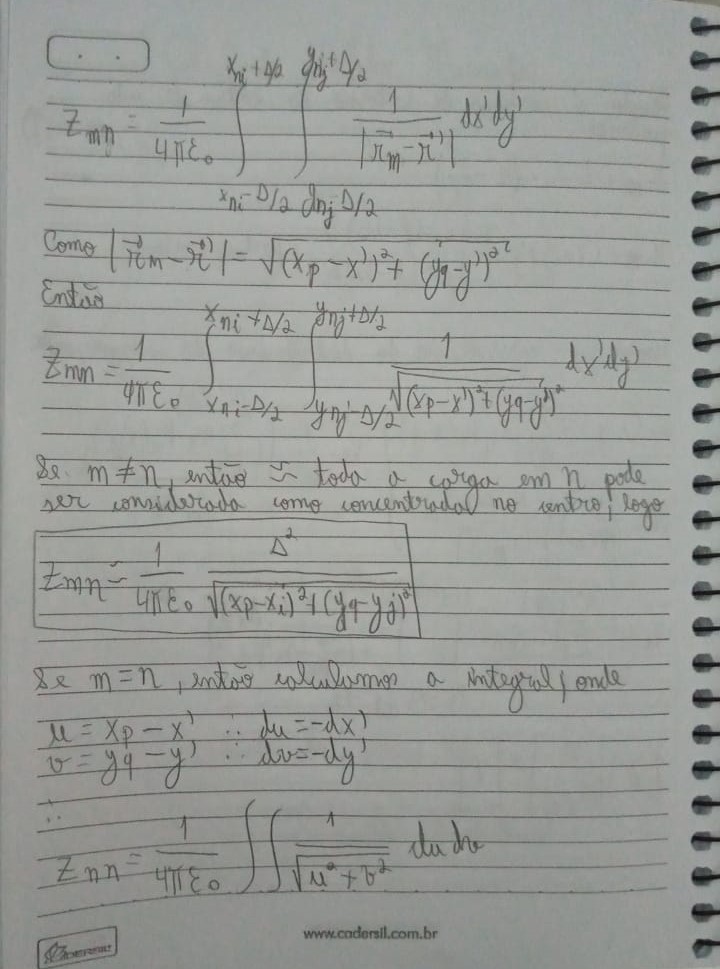 Z_mn = 1/(4πε₀) ∫_{x_ni - Δ/2}^{x_ni + Δ/2} ∫_{y_nj - Δ/2}^{y_nj + Δ/2} 1/|r⃗_m - r⃗'| dx'dy'
Como |r⃗_m - r⃗'| = √((x_p - x')² + (y_q - y')²)
Então
Z_mn = 1/(4πε₀) ∫_{x_ni - Δ/2}^{x_ni + Δ/2} ∫_{y_nj - Δ/2}^{y_nj + Δ/2} 1/√((x_p - x')² + (y_q - y')²) dx'dy'
Se m ≠ n, então ≈ toda a carga em n pode
ser considerada como concentrada no centro, logo
Z_mn ≈ 1/(4πε₀) Δ²/√((x_p - x_i)² + (y_q - y_j)²)
Se m = n, então calculamos a integral, onde
u = x_p - x' ∴ du = -dx'
v = y_q - y' ∴ dv = -dy'
∴
Z_nn = 1/(4πε₀) ∫∫ 1/√(u² + v²) du dv
www.cadersil.com.br